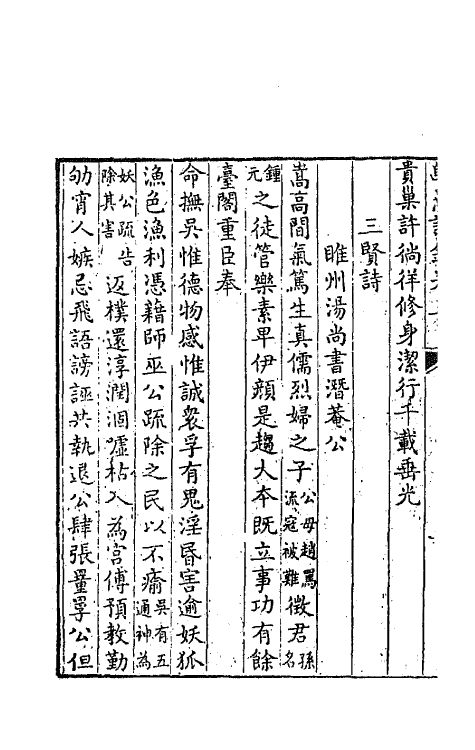 貴巢許徜徉修身潔行千載垂光
三賢詩
睢州湯尚書潛菴公
嵩高間氣篤生真儒烈婦之子公母趙罵流寇被難徵君孫名
鍾元之徒管樂素畀伊顏是趨大本既立事功有餘
臺閣重臣奉
命撫吳惟德物感惟誠衆孚有鬼淫昏害逾妖狐
漁色漁利憑藉師巫公疏除之民以不痡吳有五通神為
妖公疏告除其害返樸還淳潤涸噓枯入為宮傅預教勤
劬宵人嫉忌飛語謗誣共執退公肆張罿罦公但